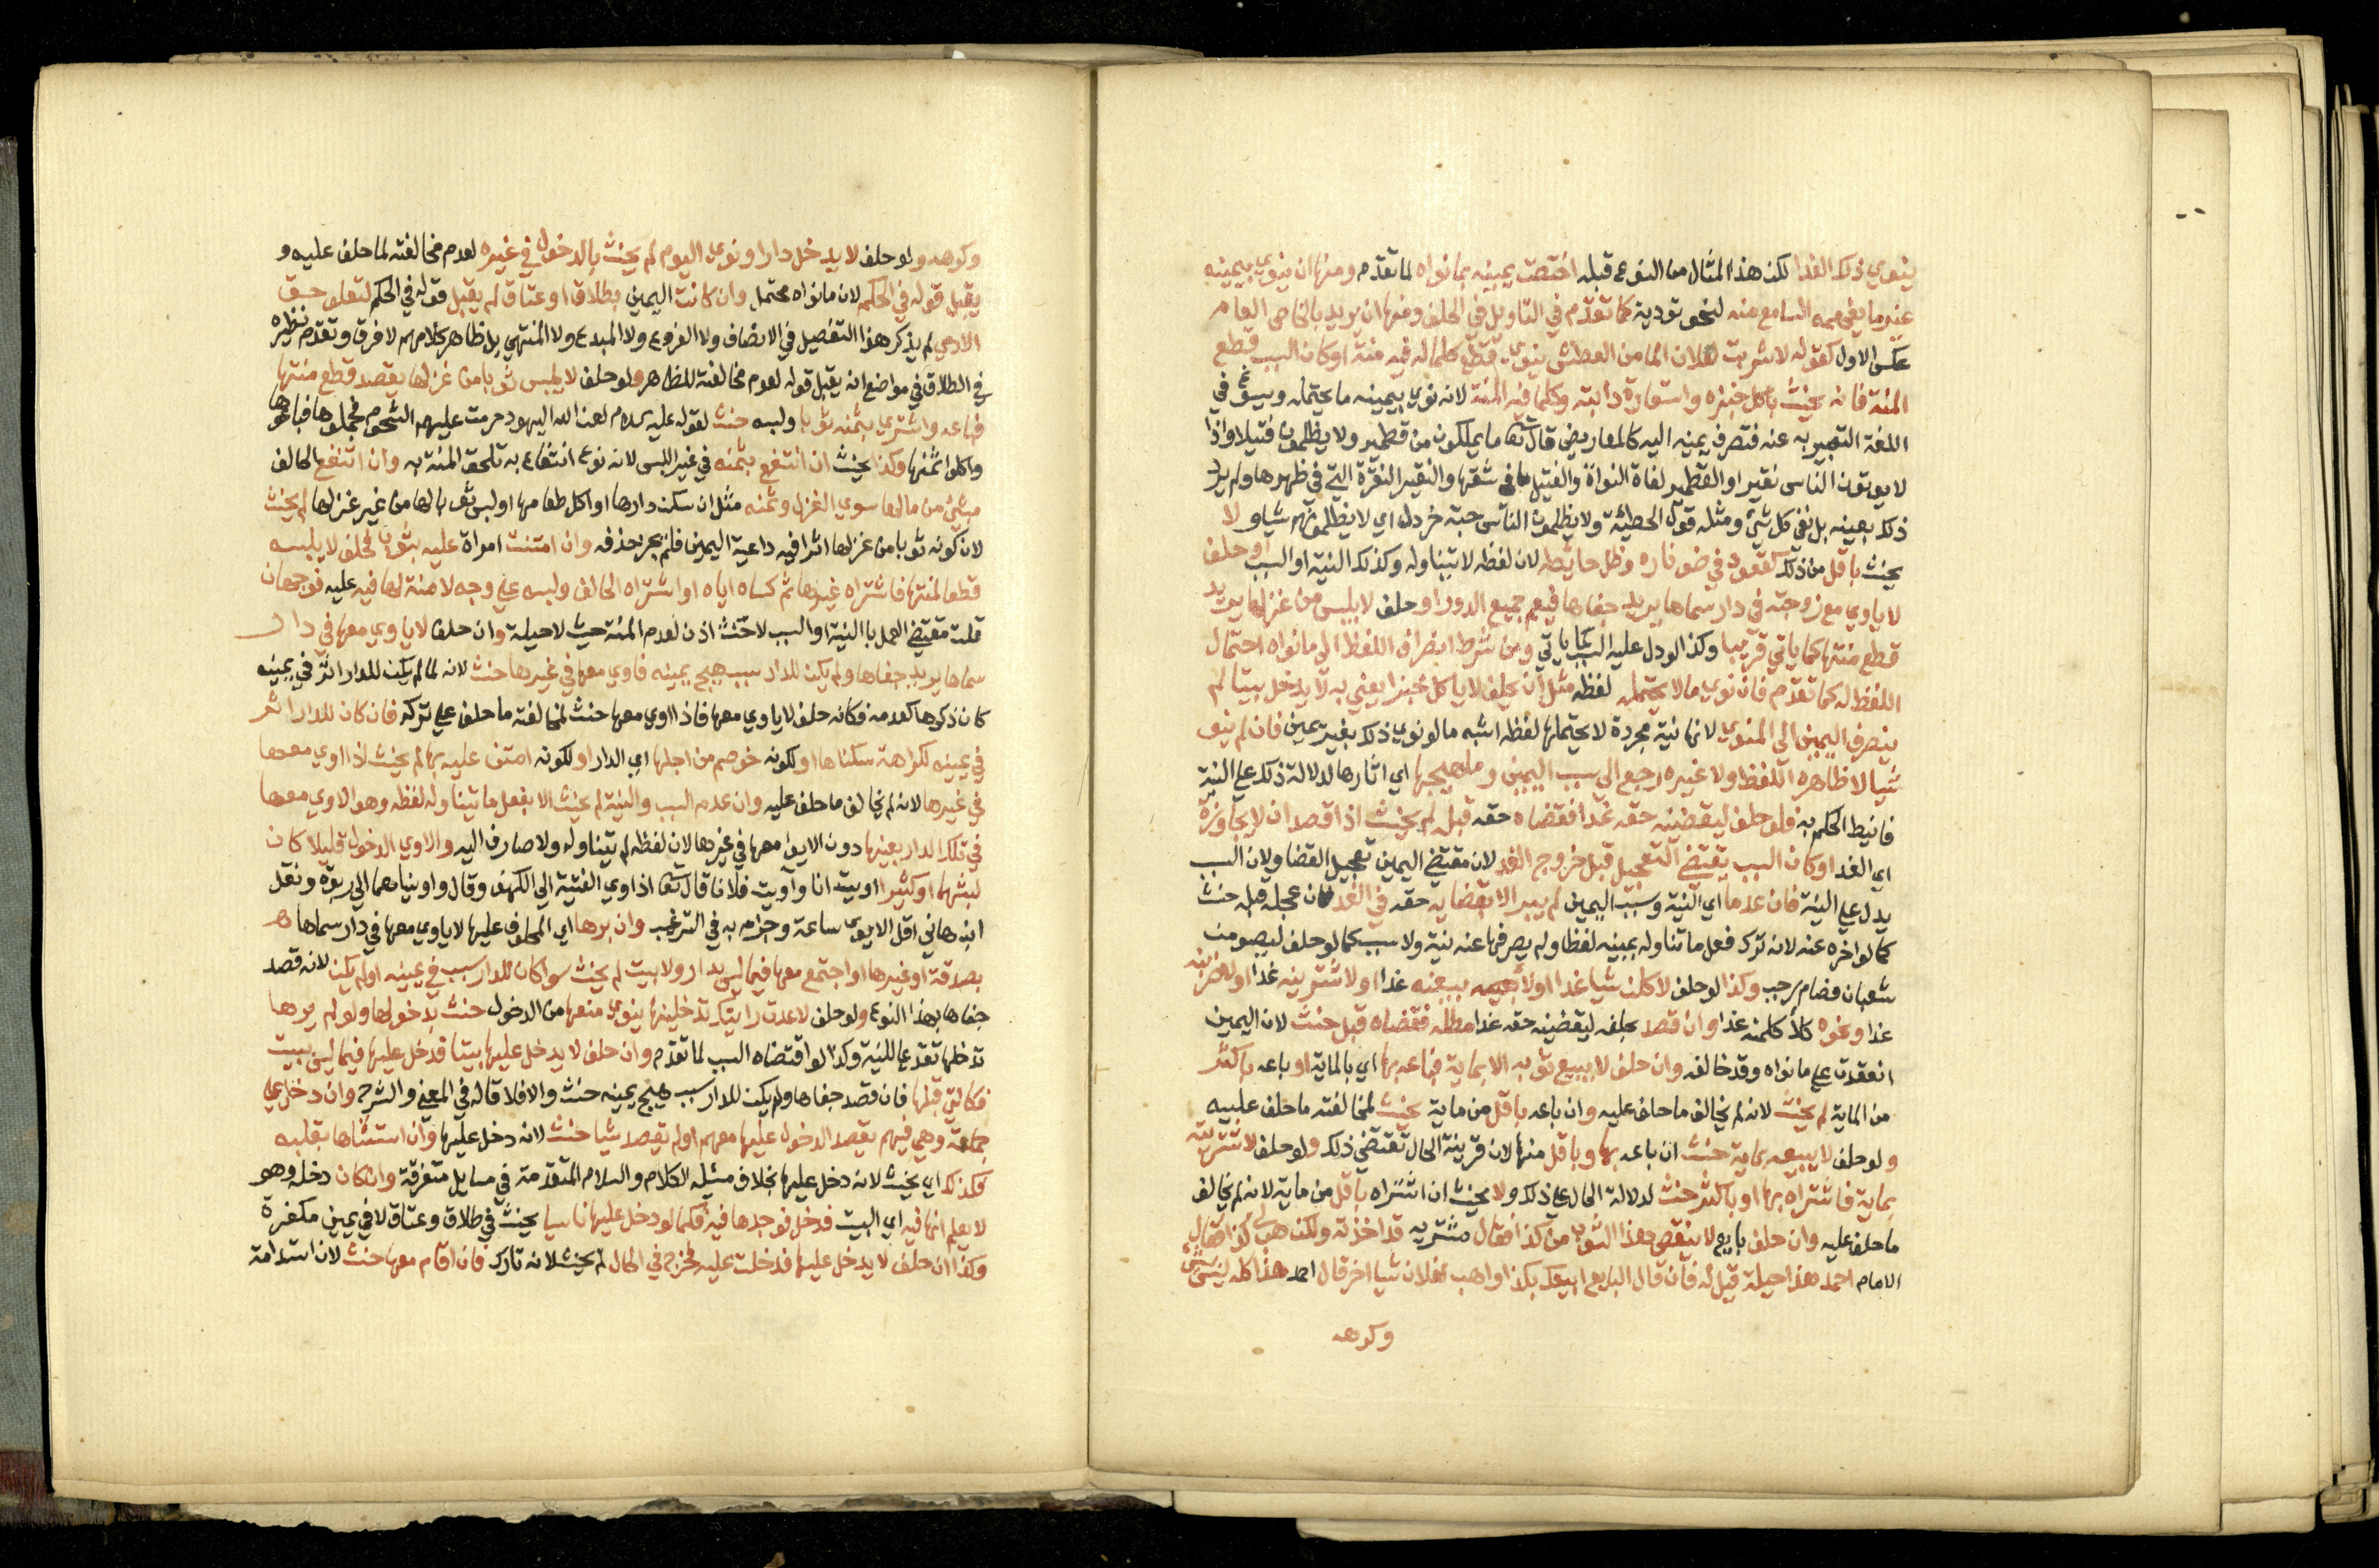 ينوي ذلك الغدا لكن هذا المثال من النوع قبله اختصت يمينه بما نواه لما تقدم ومنها ان ينوي بيمينه
غير ما يفهمه السامع منه لنحو تورية كما تقدم في التاويل في الحلف ومنها ان يريد بالخاص العام
عكس الاول كقوله لا شربت لفلان الما من العطش ينوي قطع كلما له فيه منة او كان السبب قطع
المنة فانه يحنث باكل خبزه واستعارة دابته وكلما فيه المنة لانه نوي بيمينه ما يحتمله ويسوغ في
اللغة التعبير به عنه فتصرف يمينه اليه كالمعاريض قال تعا ما يملكون من قطمير ولا يظلمون فتيلا واذا
لا يوتون الناس نقيرا والقطمير لفافة النواة والفتيل ما في شقها والنقير النقرة التي في ظهرها ولم يرد
ذلك بعينه بل نفي كل شي ومثله قول الحطئية ولا يظلمون الناس حبة خردل اي لا يظلمونهم شيا ولا
يحنث باقل من ذلك كقعود في ضو ناره وظل حائطه لان لفظه لا يتناوله وكذلك النية او السبب او حلف
لا ياوي مع زوجته في دار سماها يريد جفاها فيعم جميع الدور او حلف لا يلبس من غزلها يريد
قطع منتها كما ياتي قريبا وكذا لو دل عليه السبب كما ياتي ومن شرط انصراف اللفظ الي ما نواه احتمال
اللفظ له كما تقدم فان نوي ما لا يحتمله لفظه مثل ان يحلف لا ياكل خبزا يعني به لا يدخل بيتا لم
ينصرف اليمين الي المنوي لانها نية مجردة لا يحتملها لفظه اشبه ما لو نوي ذلك بغير يمين فان لم ينو
شيا لا ظاهر اللفظ ولا غيره رجع الي سبب اليمين وما هيجها اي اثارها لدلالة ذلك علي النية
فانيط الحكم به فلو حلف ليقضينه حقه غدا فقضاه حقه قبل لم يحنث اذا قصد ان لا يجاوزه
اي الغد او كان السبب يقتضي التعجيل قبل خروج الغد لان مقتضي اليمين تعجيل القضا ولان السبب
يدل علي النية فان عدما اي النية وسبب اليمين لم يبر الا بقضايه حقه في الغد فان عجله قبله حنث
كما لو اخره عنه لانه ترك فعل ما تناوله يمينه لفظا ولم يصرفها عنه نية ولا سبب كما لو حلف ليصومن
شعبان فصام رجب وكذا لو حلف لاكلن شيا غدا او لا بيعه يبيعنه غدا او لاشترينه غدا او لاضربنه
غدا ونحوه كلأ كلمنه غدا وان قصد بحلفه ليقضينه حقه غدا مطله فقضاه قبل حنث لان اليمين
انعقدت علي ما نواه وقد خالفه وان حلف لا يبيع ثوبه الا بماية فباعه بها اي بالماية او باعه باكثر
من الماية لم يحنث لانه لم يخالف ما حلف عليه وان باعه باقل من ماية يحنث لمخالفته ما حلف علييه
ولو حلف لا يبيعه بماية حنث ان باعه بها وباقل منها لان قرينة الحال تقتضي ذلك ولو حلف لا اشتريته
بماية فاشتراه بها او باكثر حنث لدلالة الحال علي ذلك ولا يحنث ان اشتراه باقل من ماية لانه لم يخالف
ما حلف عليه وان حلف بايع لا ينقص هذا الثوب من كذا فقال مشتريه قد اخذته ولكن هب لي كذا فقال
الامام احمد هذا حيلة قيل له فان قال البايع ابيعك بكذا واهب لفلان شيا اخر قال احمد هذا كله ليس بشي
وكرهه
وكرهه ولو حلف لا يدخل دارا ونوي اليوم لم يحنث بالدخول في غيره لعدم مخالفته لما حلف عليه و
يقبل قوله في الحكم لان ما نواه محتمل وان كانت اليمين بطلاق او عتاق لم يقبل قوله في الحكم لتعلق حق
الادمي لم يذكر هذا التفصيل في الانصاف ولا الفروع ولا المبدع ولا المنتهي بل ظاهر كلامهم لا فرق وتقدم نظيره
في الطلاق في مواضع انه يقبل قوله لعدم مخالفته للظاهر ولو حلف لا يلبس ثوبا من غزلها يقصد قطع منتها
فباعه واشتري بثمنه ثوبا ولبسه حنث لقوله عليه السلام لعن الله اليهود حرمت عليهم الشحوم فجملوها فباعوها
واكلوا ثمنها وكذا يحنث ان انتفع بثمنه في غير اللبس لانه نوع انتفاع به تلحق المنة به وان انتفع الحالف
بشئ من مالها سوي الغزل وثمنه مثل ان سكن دارها او اكل طعامها او لبس ثوبا لها من غير غزلها لم يحنث
لان كونه ثوبا من غزلها اثرا فيه داعية اليمين فلم يجز حذفه وان امتنت امراة عليه بثوب فحلف لا يلبسه
قطعا لمنتها فاشتراه غيرها ثم كساه اياه او اشتراه الحالف ولبسه علي وجه لا منة لها فيه عليه فوجهان
قلت مقتضي العمل بالنية او السبب لا حنث اذن لعدم المنة حيث لا حيلة وان حلف لا ياوي معها في دار
سماها يريد جفاها ولم يكن للدار سبب هيج يمينه فاوي معها في غيرها حنث لانه لما لم يكن للدار اثر في يمينه
كان ذكرها كعدمه فكانه حلف لا ياوي معها فاذا اوي معها حنث لمخالفته ما حلف علي تركه فان كان للدار اثر
في يمينه لكراهة سكناها او لكونه خوصم من اجلها اي الدار او لكونه امتن عليه بها لم يحنث اذا اوي معها
في غيرها لانه لم يخالف ما حلف عليه وان عدم السبب والنية لم يحنث الا بفعل ما تيناوله لفظه وهو الاوي معها
في تلك الدار بعينها دون الايوا معها في غيرها لان لفظه لم يتناوله ولا صارف اليه والاوي الدخول قليلا كان
لبثهما او كثيرا اويت انا وآويت فلانا قال تعا اذ اوي الفتية الي الكهف وقال واويناهما الي ربوة ونقل
ابن هاني اقل الايوا ساعة وجزم به في الترغيب وان برها اي المحلوف عليها لا ياوي معها في دار سماها
بصدقة او غيرها او اجتمع معها فيما ليس بدار ولا بيت لم يحنث سوا كان للدار سبب في يمينه او لم يكن لانه قصد
جفاها بهذا النوع ولو حلف لا عدت رايتك تدخلينها ينوي منعها من الدخول حنث بدخولها ولو لم يرها
تدخلها تقديما للنية وكذا لو اقتضاه السبب لما تقدم وان حلف لا يدخل عليها بيتا فدخل عليها فيما ليس ببيت
فكالتي قبلها فان قصد جفاها ولم يكن للدار سبب هيج يمينه حنث والا فلا قاله في المغني والشرح وان دخل علي
جماعة وهي فيهم يقصد الدخول عليها معهم او لم يقصد شيا حنث لانه دخل عليها وان استثناها بقلبه
فكذلك اي يحنث لانه دخل عليها بخلاف مسئلة الكلام والسلام المتقدمة في مسايل متفرقة وان كان دخل وهو
لا يعلم انها فيه اي البيت فدخل فوجدها فيه فكما لو دخل عليها ناسيا يحنث في طلاق وعتاق لا في يمين مكفرة
وكذا ان حلف لا يدخل عليها فدخلت عليه فخرج في الحال لم يحنث لانه تارك فان اقام معها حنث لان استدامة